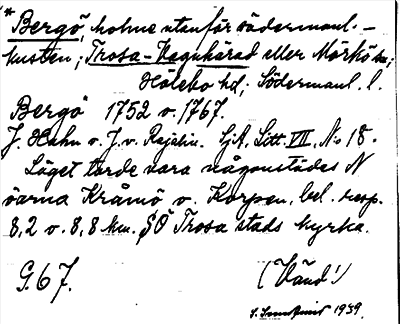 * Bergö, holme utanför södermanl. -
kusten; Trosa-Vagnhärad eller Mörkö sn;
Hölebo hd; Södermanl. l.
Bergö 1752 o. 1767.
J. Hahn o. J. v. Rajalin. SjA, Litt. VII, No 18.
Läget torde vara någonstädes N
öarna Krämö o. Korpen, bel. resp.
8,2 o. 8,8 km. SÖ Trosa stads kyrka.
G. 67.
(Vänd!)
1939.